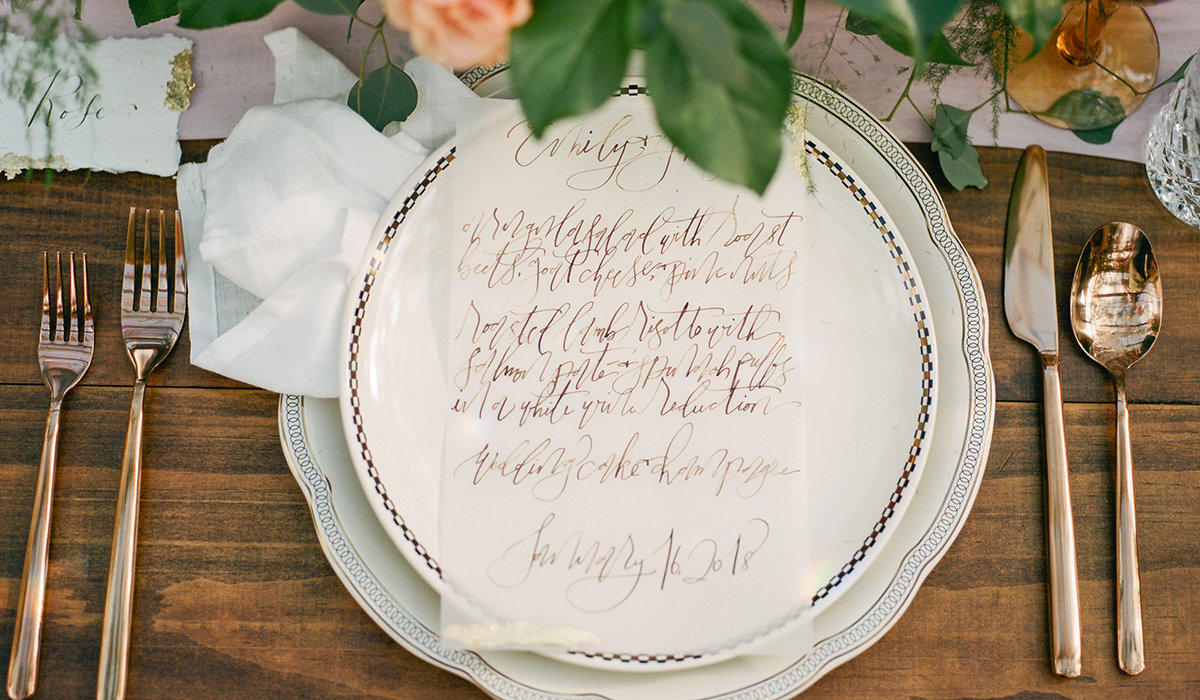 Rose
Emily &
arugula salad with roast
beets, goat cheese & pine nuts
roasted lamb risotto with
salmon pate & spinach puffs
in a white wine reduction
wedding cake & champagne
January 16, 2018